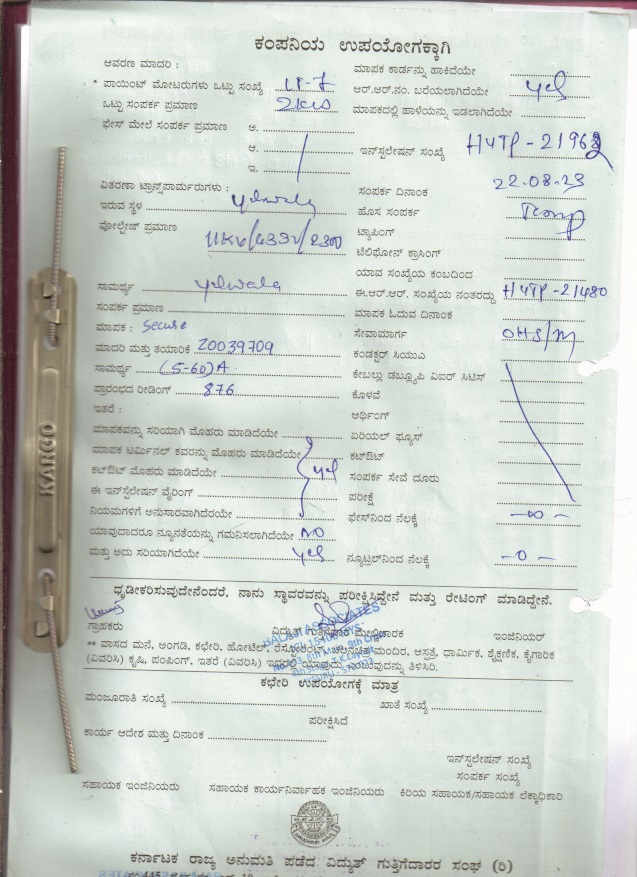 ಕಂಪನಿಯ ಉಪಯೋಗಕ್ಕಾಗಿ
ಆವರಣ ಮಾದರಿ :
* ಪಾಯಿಂಟ್ ಮೋಟರುಗಳು ಒಟ್ಟು ಸಂಖ್ಯೆ
ಒಟ್ಟು ಸಂಪರ್ಕ ಪ್ರಮಾಣ 2KW
ಫೇಸ್ ಮೇಲೆ ಸಂಪರ್ಕ ಪ್ರಮಾಣ ಅ.
ಆ.
ಇ.
ವಿತರಣಾ ಟ್ರಾನ್ಸ್‌ಫಾರ್ಮರುಗಳು :
ಇರುವ ಸ್ಥಳ yelwala
ವೋಲ್ಟೇಜ್ ಪ್ರಮಾಣ
ಸಾಮರ್ಥ್ಯ yelwala
ಸಂಪರ್ಕ ಪ್ರಮಾಣ
ಮಾಪಕ : Secure
ಮಾದರಿ ಮತ್ತು ತಯಾರಿಕೆ 20039709
ಸಾಮರ್ಥ್ಯ (5-60)A
ಪ್ರಾರಂಭದ ರೀಡಿಂಗ್ 876
ಇತರೆ :
ಮಾಪಕವನ್ನು ಸರಿಯಾಗಿ ಮೊಹರು ಮಾಡಿದೆಯೇ
ಮಾಪಕ ಟರ್ಮಿನಲ್ ಕವರನ್ನು ಮೊಹರು ಮಾಡಿದೆಯೇ
ಕಟ್‌ಔಟ್ ಮೊಹರು ಮಾಡಿದೆಯೇ yes
ಈ ಇನ್‌ಸ್ಟಲೇಷನ್ ವೈರಿಂಗ್
ನಿಯಮಗಳಿಗೆ ಅನುಸಾರವಾಗಿದೆಯೇ
ಯಾವುದಾದರೂ ನ್ಯೂನತೆಯನ್ನು ಗಮನಿಸಲಾಗಿದೆಯೇ NO
ಮತ್ತು ಅದು ಸರಿಯಾಗಿದೆಯೇ yes
ಮಾಪಕ ಕಾರ್ಡನ್ನು ಹಾಕಿದೆಯೇ
ಆರ್.ಆರ್.ನಂ. ಬರೆಯಲಾಗಿದೆಯೇ yes
ಮಾಪಕದಲ್ಲಿ ಹಾಳೆಯನ್ನು ಇಡಲಾಗಿದೆಯೇ
ಇನ್‌ಸ್ಟಲೇಷನ್ ಸಂಖ್ಯೆ
ಸಂಪರ್ಕ ದಿನಾಂಕ 22.08.23
ಹೊಸ ಸಂಪರ್ಕ Temp
ಟ್ಯಾಪಿಂಗ್
ಟೆಲಿಫೋನ್ ಕ್ರಾಸಿಂಗ್
ಯಾವ ಸಂಖ್ಯೆಯ ಕಂಬದಿಂದ
ಈ.ಆರ್.ಆರ್. ಸಂಖ್ಯೆಯ ನಂತರದ್ದು HYTP-21480
ಮಾಪಕ ಓದುವ ದಿನಾಂಕ
ಸೇವಾಮಾರ್ಗ OHS/M
ಕಂಡಕ್ಟರ್ ಸಿಯುಎ
ಕೇಬಲ್ಲು ಡಬ್ಲ್ಯೂಪಿ ವಿಐರ್ ಸಿಟಿಸ್
ಕೊಳವೆ
ಆರ್ಥಿಂಗ್
ಏರಿಯಲ್ ಫ್ಯೂಸ್
ಕಟ್‌ಔಟ್
ಸಂಪರ್ಕ ಸೇವೆ ದೂರು
ಪರೀಕ್ಷೆ
ಫೇಸ್‌ನಿಂದ ನೆಲಕ್ಕೆ
ನ್ಯೂಟ್ರಲ್‌ನಿಂದ ನೆಲಕ್ಕೆ -0-
KARGO
ಧೃಡೀಕರಿಸುವುದೇನೆಂದರೆ, ನಾನು ಸ್ಥಾವರವನ್ನು ಪರೀಕ್ಷಿಸಿದ್ದೇನೆ ಮತ್ತು ರೇಟಿಂಗ್ ಮಾಡಿದ್ದೇನೆ.
ಗ್ರಾಹಕರು
ವಿದ್ಯುತ್ ಗುತ್ತಿಗೆದಾರ ಮೇಲ್ವಿಚಾರಕ
ಇಂಜಿನಿಯರ್
** ವಾಸದ ಮನೆ, ಅಂಗಡಿ, ಕಛೇರಿ, ಹೋಟೆಲ್, ರೆಸ್ಟೋರೆಂಟ್, ಚಲನಚಿತ್ರಮಂದಿರ, ಆಸ್ಪತ್ರೆ, ಧಾರ್ಮಿಕ, ಶೈಕ್ಷಣಿಕ, ಕೈಗಾರಿಕ
(ವಿವರಿಸಿ) ಕೃಷಿ, ಪಂಪಿಂಗ್, ಇತರೆ (ವಿವರಿಸಿ) ಇದರಲ್ಲಿ ಯಾವುದು ಎಂಬುದನ್ನು ತಿಳಿಸಿರಿ.
ಕಛೇರಿ ಉಪಯೋಗಕ್ಕೆ ಮಾತ್ರ
ಮಂಜೂರಾತಿ ಸಂಖ್ಯೆ
ಖಾತೆ ಸಂಖ್ಯೆ
ಪರೀಕ್ಷಿಸಿದೆ
ಕಾರ್ಯ ಆದೇಶ ಮತ್ತು ದಿನಾಂಕ
ಇನ್‌ಸ್ಟಲೇಷನ್ ಸಂಖ್ಯೆ
ಸಂಪರ್ಕ ಸಂಖ್ಯೆ
ಸಹಾಯಕ ಇಂಜಿನಿಯರು
ಸಹಾಯಕ ಕಾರ್ಯನಿರ್ವಾಹಕ ಇಂಜಿನಿಯರು
ಕಿರಿಯ ಸಹಾಯಕ/ಸಹಾಯಕ ಲೆಕ್ಕಾಧಿಕಾರಿ
ಕರ್ನಾಟಕ ರಾಜ್ಯ ಅನುಮತಿ ಪಡೆದ ವಿದ್ಯುತ್ ಗುತ್ತಿಗೆದಾರರ ಸಂಘ (ರಿ)